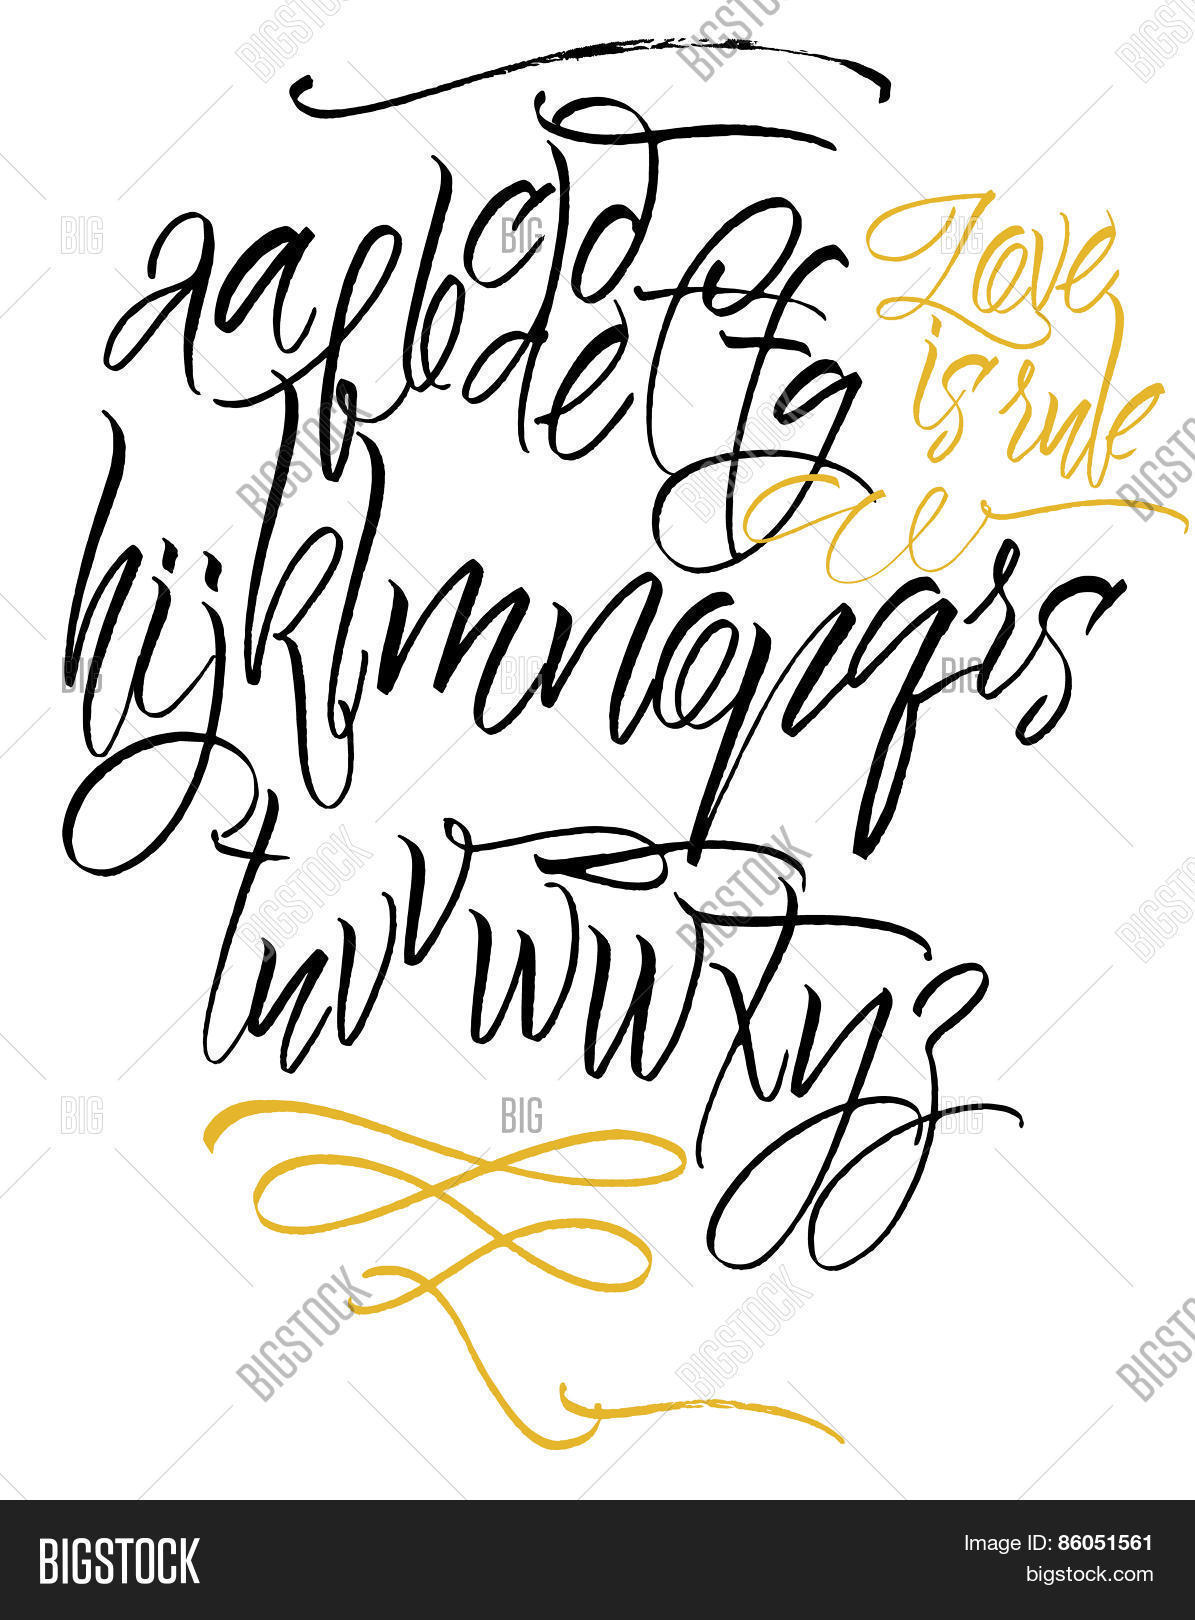 aabbcddefg
Love
is rule
hijklmnopqrs
tuvvwwxyz
BIGSTOCK
Image ID: 86051561
bigstock.com